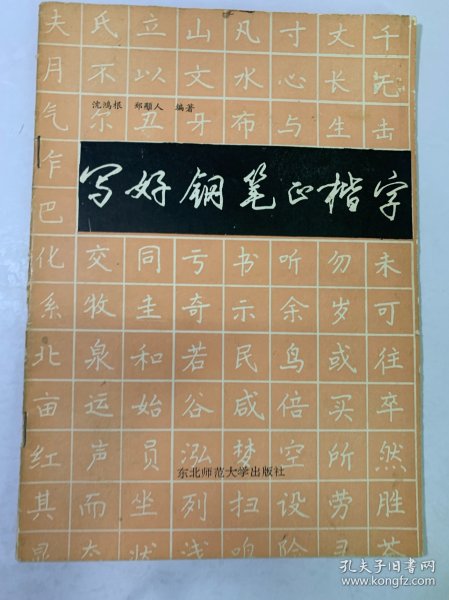 夫氏立山凡寸丈千
月不以文水心长无
沈鸿根 郑颙人 编著
气尔丑牙布与生击
乍
写好钢笔正楷字
巴
化交同亏书听勿未
系牧圭奇示余岁可
北泉和若民鸟或往
亩运始谷咸倍买卒
红声员泓梦空所然
东北师范大学出版社
其而坐列扫设劳胜
状浅响险寻荅
孔夫子旧书网
www.kongfz.com